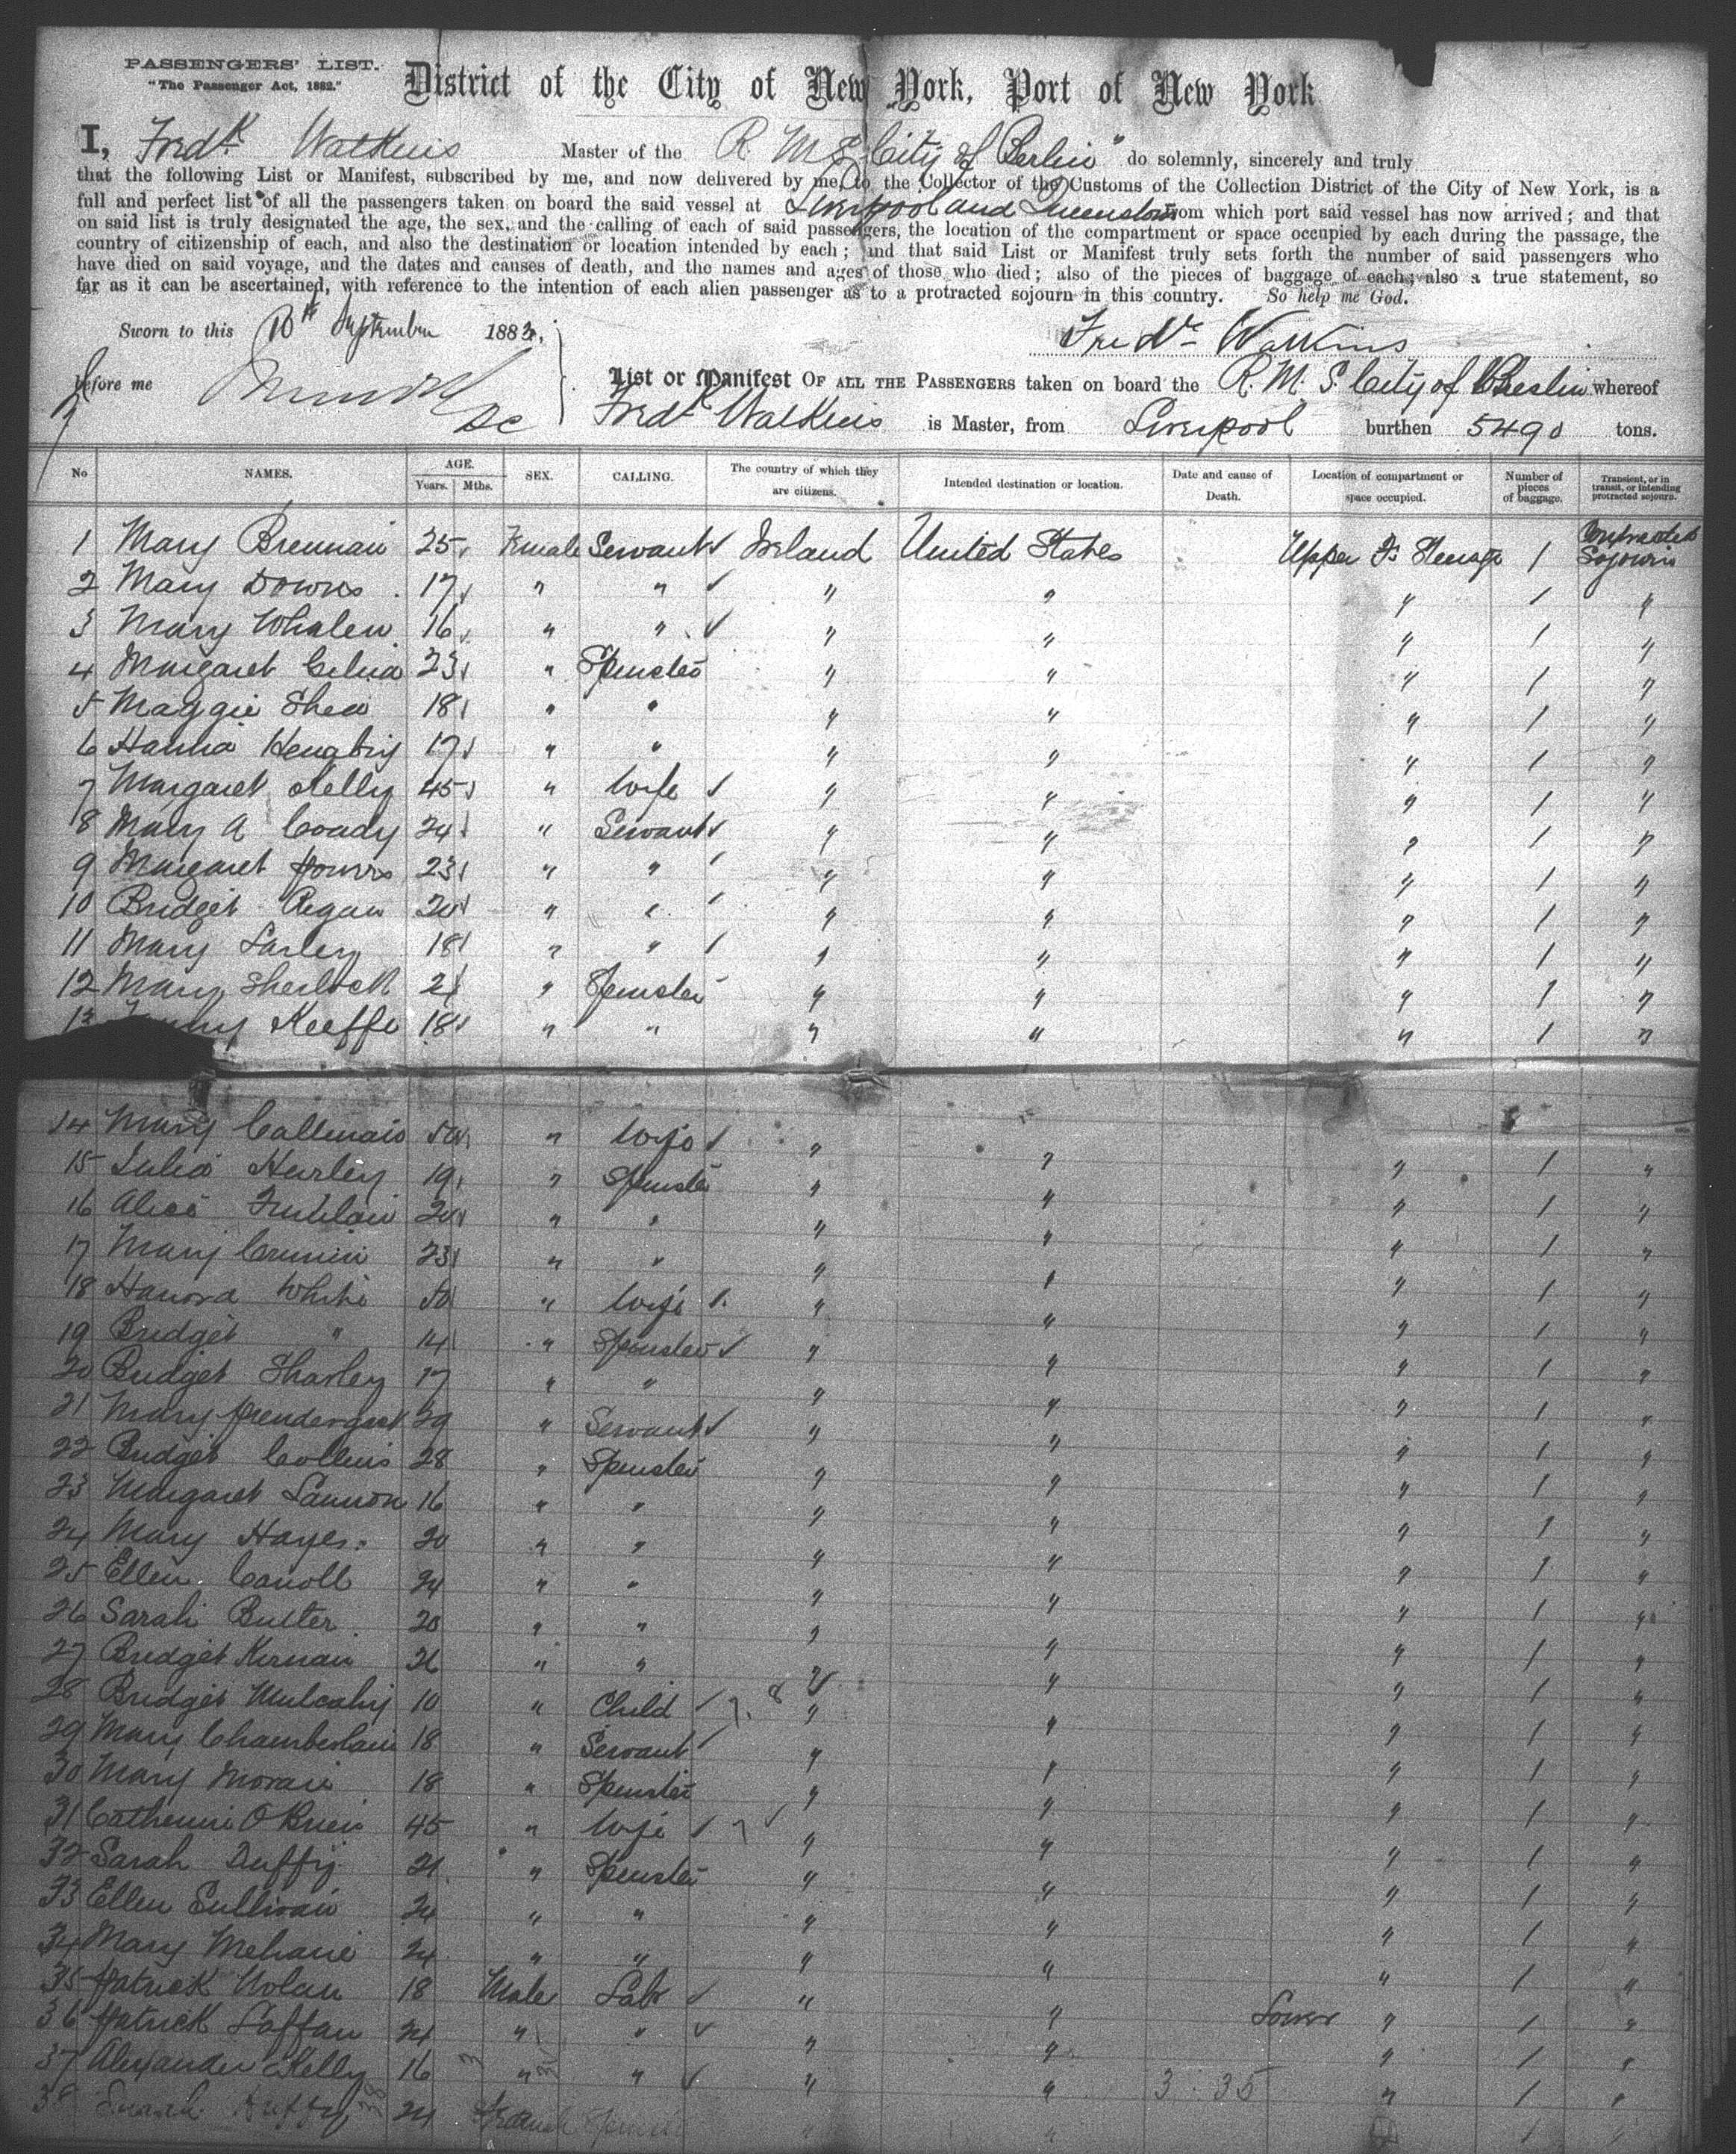 PASSENGERS' LIST.
"The Passenger Act, 1882."
District of the City of New York, Port of New York
I, Fredk Watkins Master of the R. M. S. "City of Berlin" do solemnly, sincerely and truly
that the following List or Manifest, subscribed by me, and now delivered by me, to the Collector of the Customs of the Collection District of the City of New York, is a
full and perfect list of all the passengers taken on board the said vessel at Liverpool and Queenstown from which port said vessel has now arrived; and that
on said list is truly designated the age, the sex, and the calling of each of said passengers, the location of the compartment or space occupied by each during the passage, the
country of citizenship of each, and also the destination or location intended by each; and that said List or Manifest truly sets forth the number of said passengers who
have died on said voyage, and the dates and causes of death, and the names and ages of those who died; also of the pieces of baggage of each; also a true statement, so
far as it can be ascertained, with reference to the intention of each alien passenger as to a protracted sojourn in this country. So help me God.
Sworn to this 10th September 1883, Fredk Watkins
before me
List or Manifest OF ALL THE PASSENGERS taken on board the R. M. S. City of Berlin whereof
Fredk Watkins is Master, from Liverpool burthen 5490 tons.
No NAMES. AGE. Years. Mths. SEX. CALLING. The country of which they are citizens. Intended destination or location. Date and cause of Death. Location of compartment or space occupied. Number of pieces of baggage. Transient, or in transit, or intending protracted sojourn.
1 Mary Brennan 25 Female Servant Ireland United States Upper Steerage 1 Protracted Sojourn
2 Mary Downs 17 " " " " " 1 "
3 Mary Whalen 16 " " " " " 1 "
4 Margaret 23 " Spinster " " " 1 "
5 Maggie Shea 18 " " " " " 1 "
6 Hanna 17 " " " " " 1 "
7 Margaret Kelly 45 " Wife " " " 1 "
8 Mary A Coady 24 " Servant " " " 1 "
9 Margaret Powers 23 " " " " " 1 "
10 Bridget Regan 20 " " " " " 1 "
11 Mary Farley 18 " " " " " 1 "
12 Mary Sherlock 21 " Spinster " " " 1 "
13 Keeffe 18 " " " " " 1 "
14 Mary Callenan 50 " Wife " " " 1 "
15 Julia Hurley 19 " Spinster " " " 1 "
16 Alice 20 " " " " " 1 "
17 Mary Cronin 23 " " " " " 1 "
18 Hanora White 50 " Wife " " " 1 "
19 Bridget " 14 " Spinster " " " 1 "
20 Bridget Sharley 17 " " " " " 1 "
21 Mary Prendergast 29 " Servant " " " 1 "
22 Bridget Collins 28 " Spinster " " " 1 "
23 Margaret Lannon 16 " " " " " 1 "
24 Mary Hayes. 20 " " " " " 1 "
25 Ellen Caroll 24 " " " " " 1 "
26 Sarah Butler 20 " " " " " 1 "
27 Bridget Kernan 26 " " " " " 1 "
28 Bridget Mulcahy 10 " Child " " " 1 "
29 Mary Chamberlain 18 " Servant " " " 1 "
30 Mary Moran 18 " Spinster " " " 1 "
31 Catherine O'Brien 45 " Wife " " " 1 "
32 Sarah Duffy 21 " Spinster " " " 1 "
33 Ellen Sullivan 24 " " " " " 1 "
34 Mary Mehane 24 " " " " " 1 "
35 Patrick Nolan 18 Male Labr " " Lower " 1 "
36 Patrick Laffan 24 " " " " " 1 "
37 Alexander Kelly 16 " " " " 3:35 " 1 "
38 Sarah Duffy 24 Female Spinster " " " 1 "